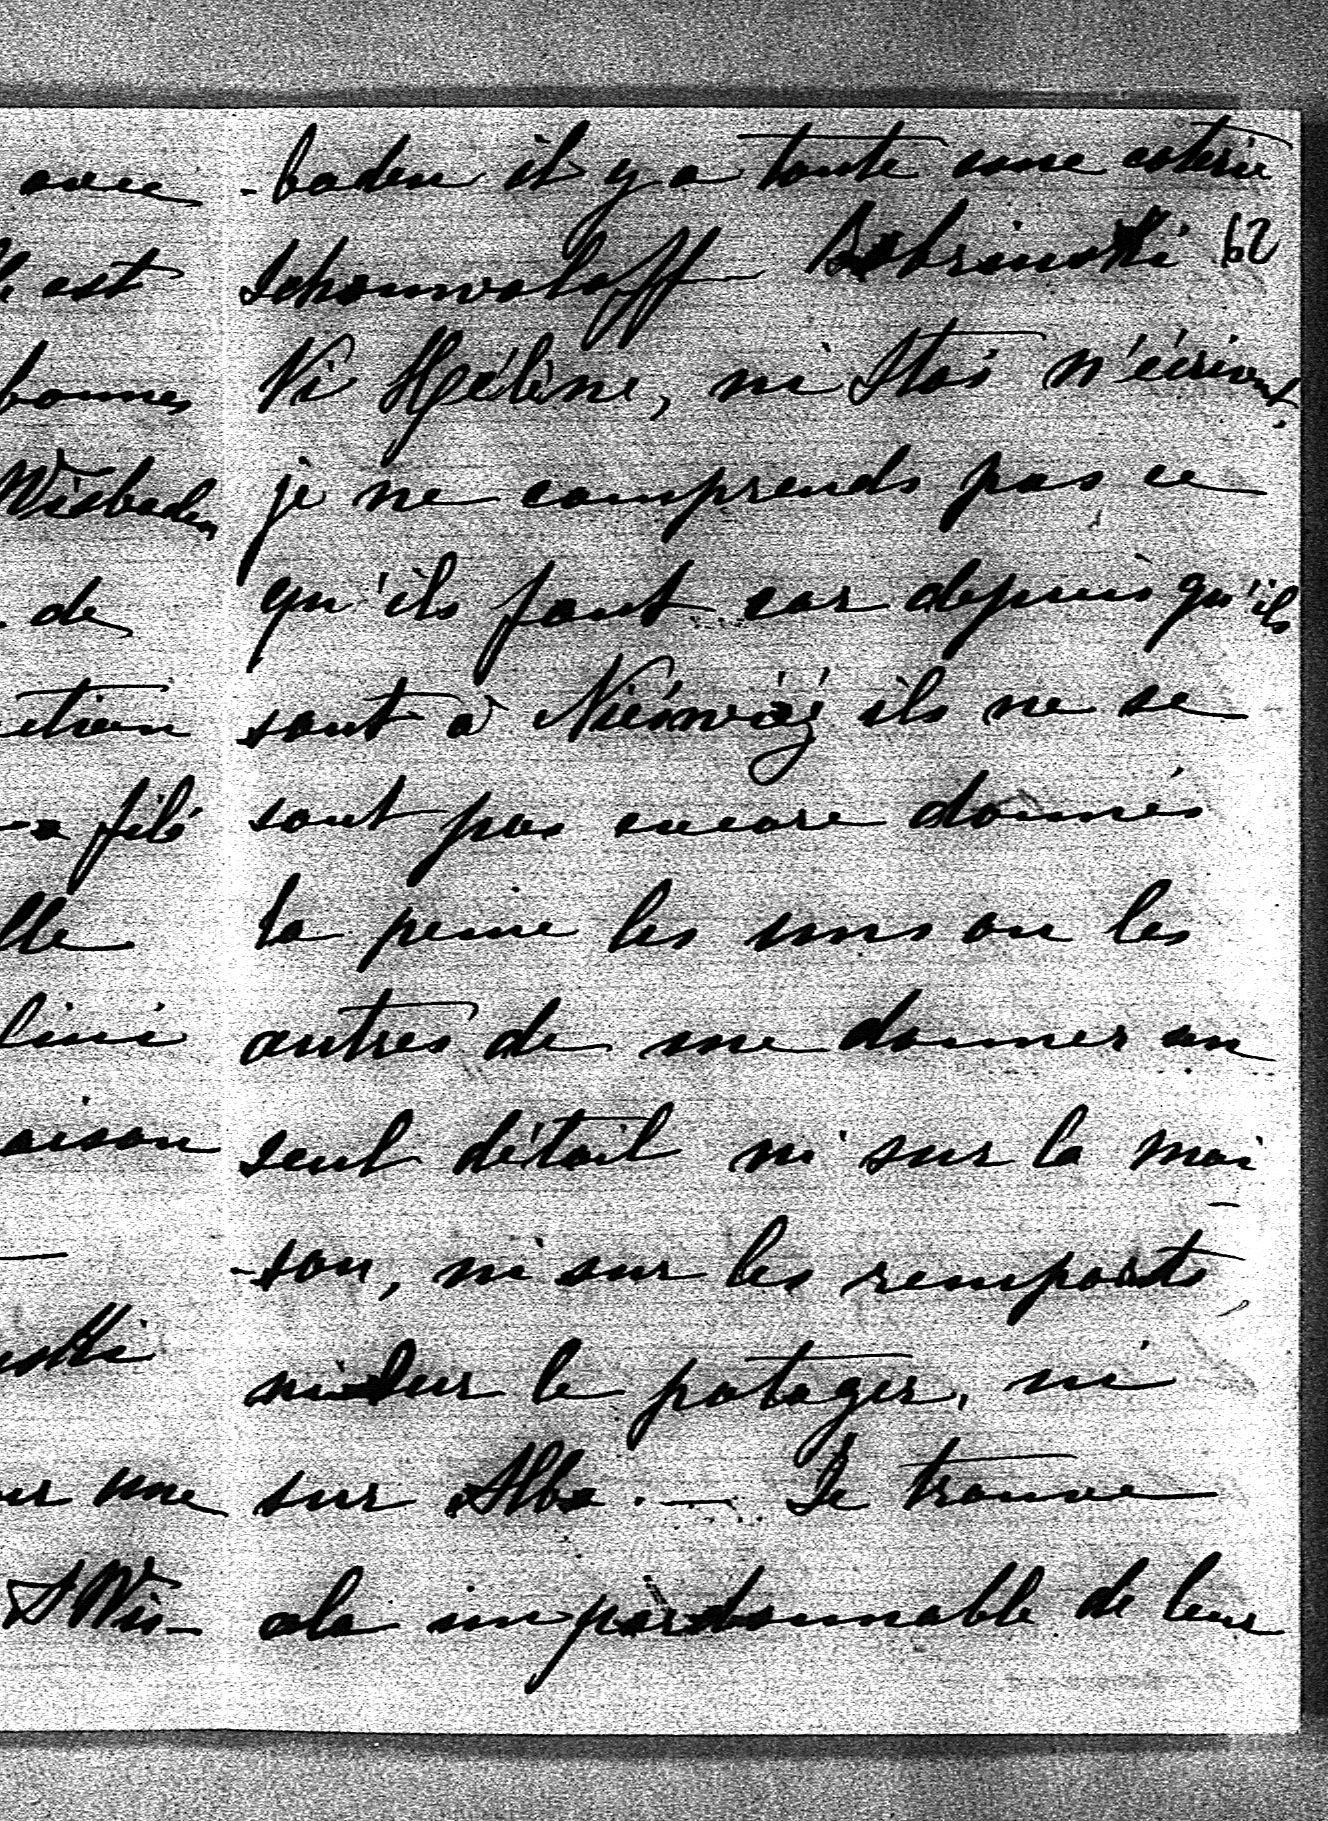 avec
est
bonnes
Wisbaden
de
filé
lini
aison
une
A Wis-
-baden il y a toute une coterie
62
Schouwaloff Bobrinski
Ni Hélène, ni Stas n'écrivent,
je ne comprends pas ce
qu'ils font car depuis qu'ils
sont à Nieśwież ils ne se
sont pas encore donnés
la peine les uns ou les
autres de me donner un
seul détail ni sur la mai
-son, ni sur les remparts
ni sur le potager, ni
sur Alba. — Je trouve
cela impardonnable de leur